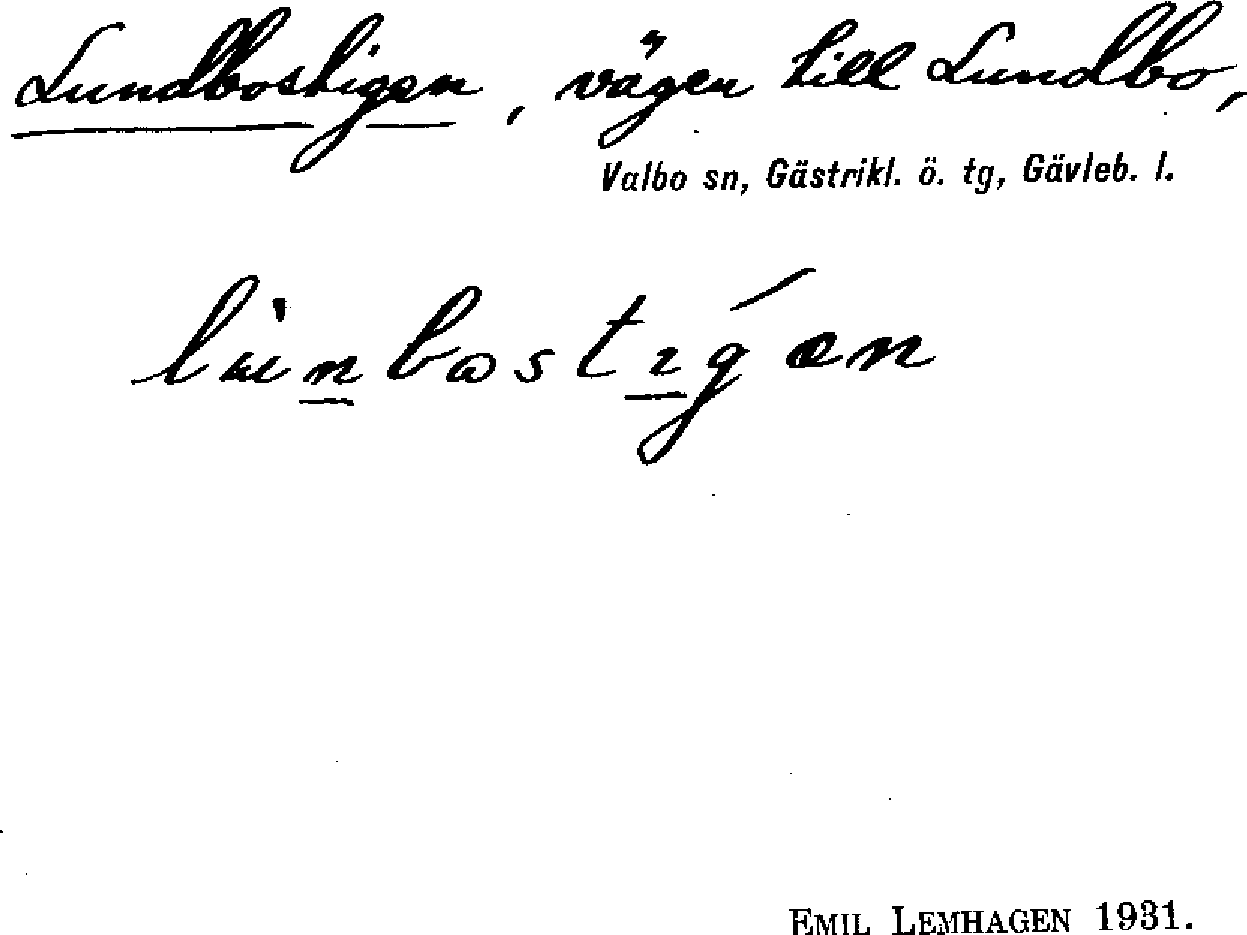 Lundbostigen, vägen till Lundbo,
Valbo sn, Gästrikl. ö. tg, Gävleb. l.
EMIL LEMHAGEN 1931.